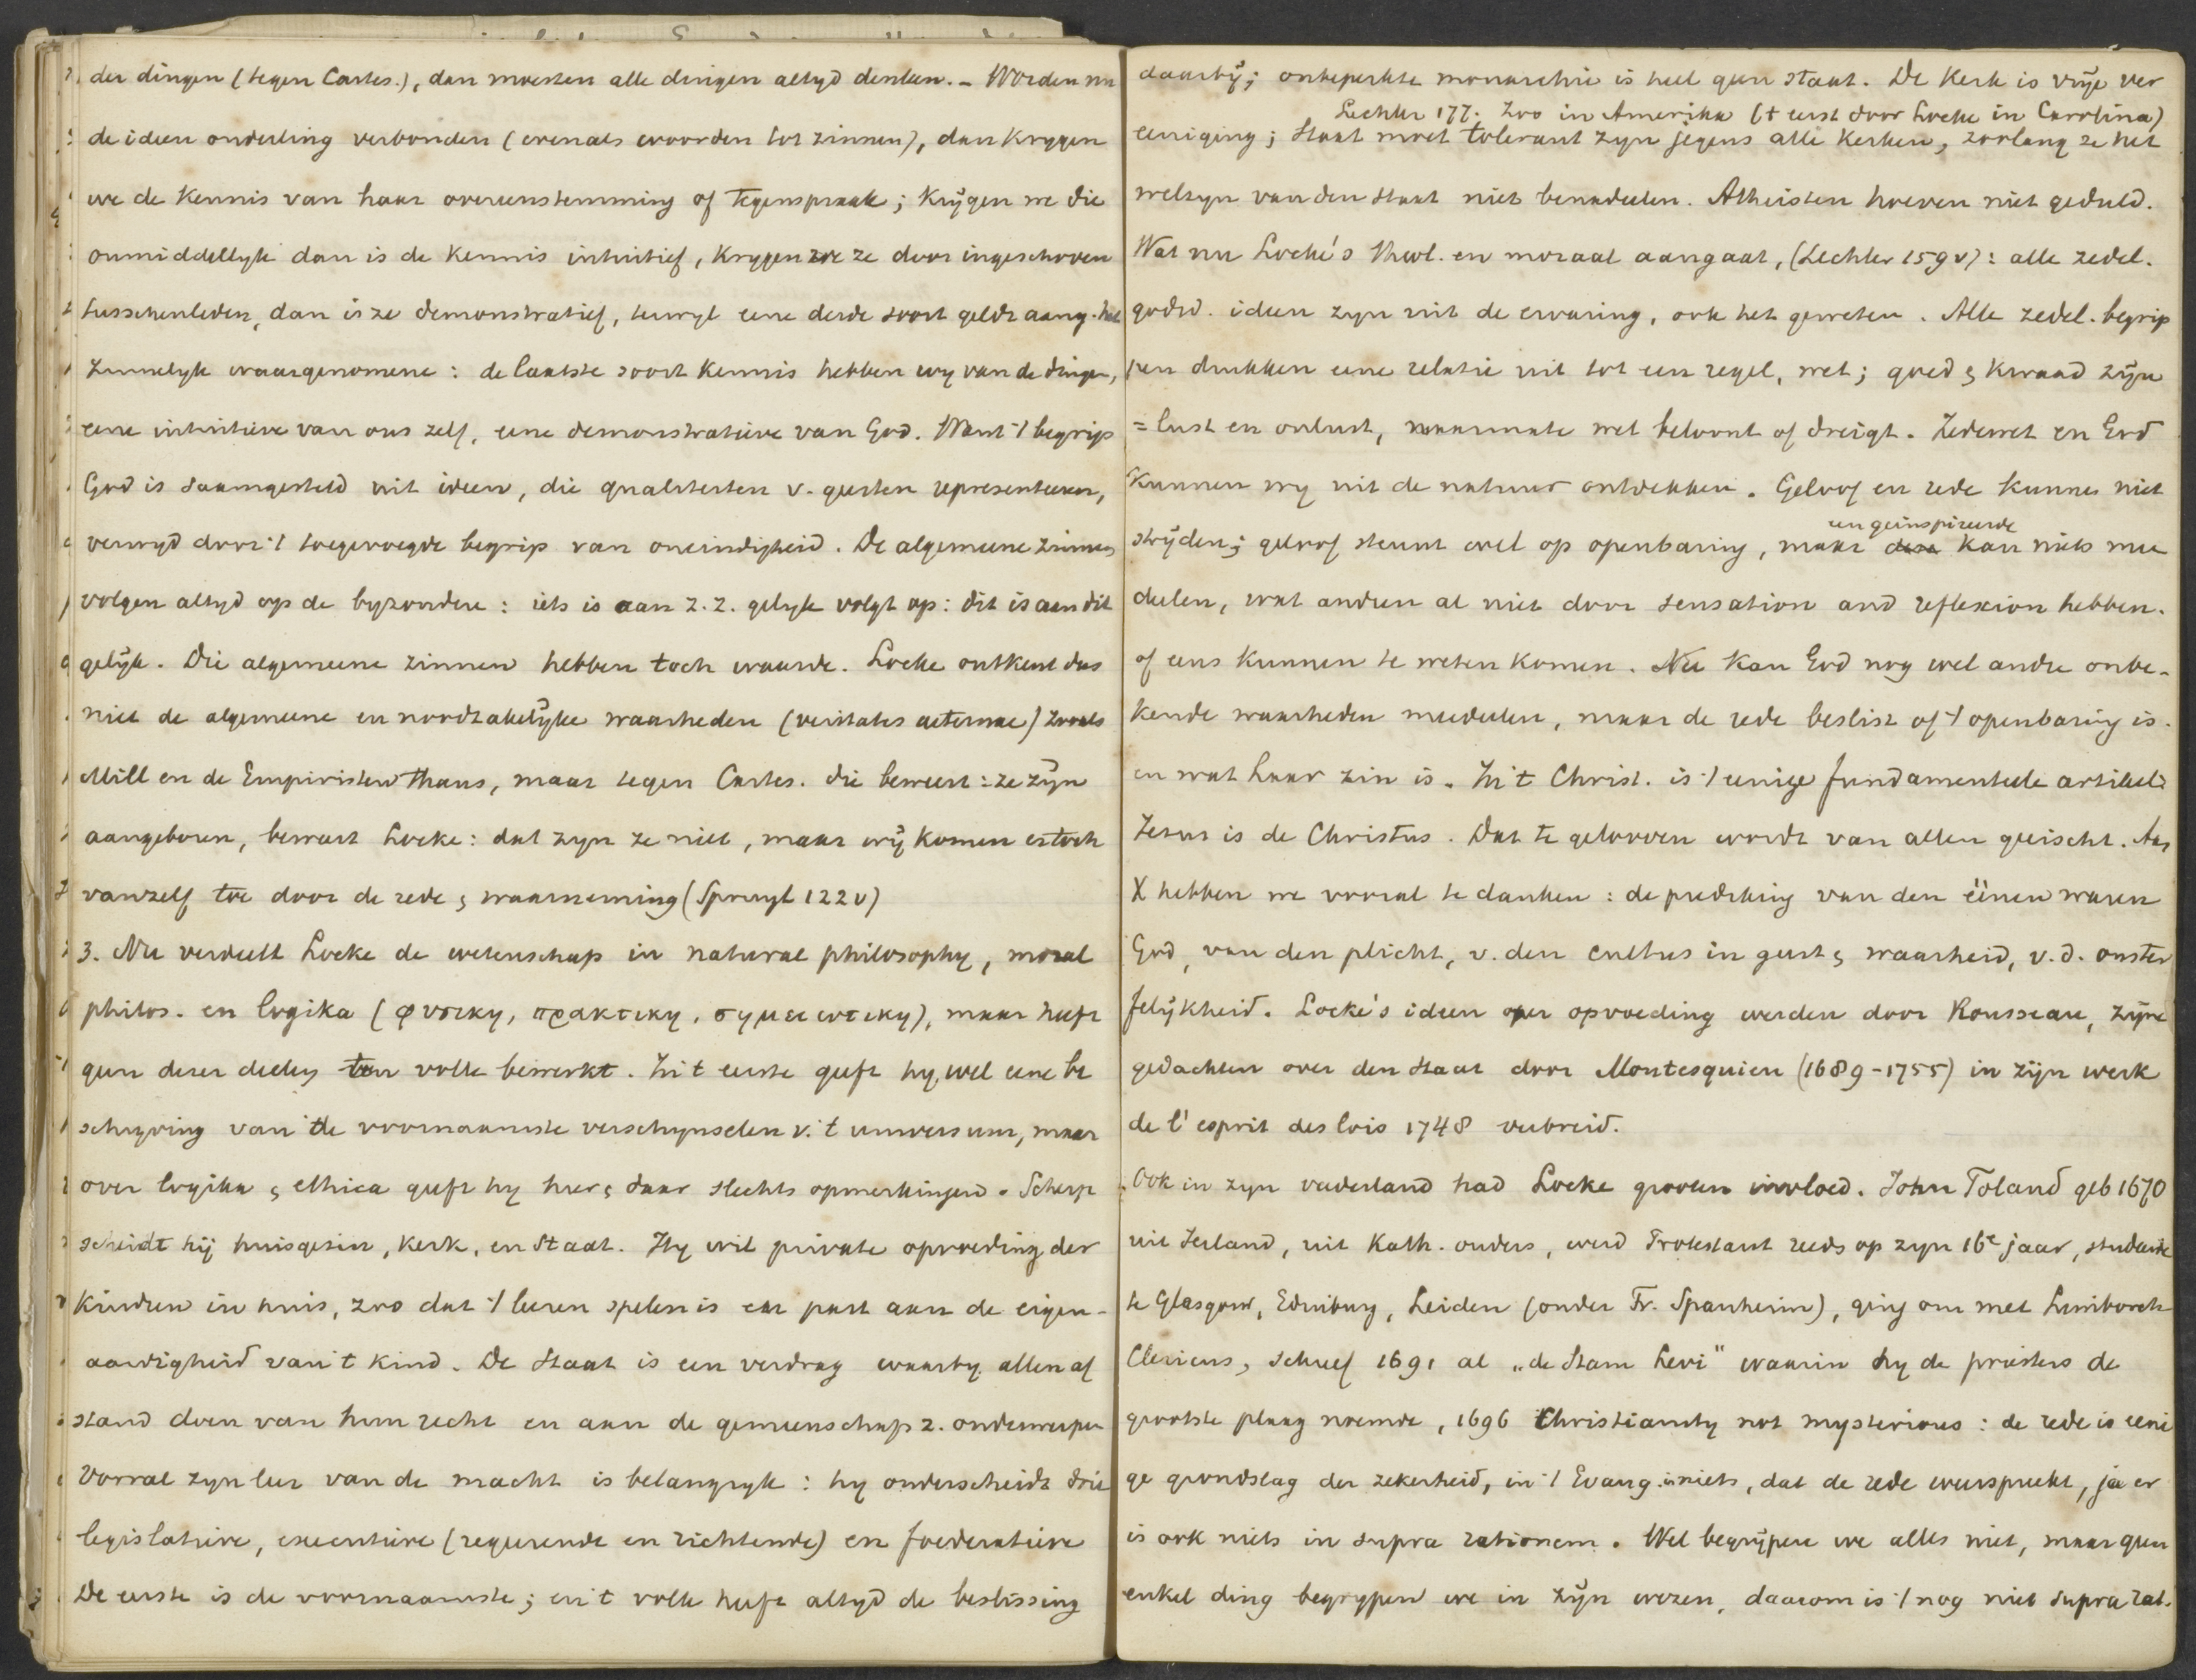 der dingen (tegen Cartes.), dan moesten alle dingen altyd denken. - Worden nu
de ideen onderling verbonden (evenals woorden tot zinnen), dan krygen
we de Kennis van haar overeenstemming of tegenspraak; Krijgen we die
onmiddellyk dan is de Kennis intuitief, Krygen we ze door ingeschoven
tusschenleden, dan is ze demonstratief, terwyl eene derde soort geldt aang. het
Zinnelyk waargenomene: de laatste soort Kennis hebben wy van de dingen,
eene intuitieve van ons zelf, eene demonstratieve van God. Want 't begrip
God is saamgesteld uit ideen, die qualiteiten v. geesten representeeren,
verwyd door 't toegevoegde begrip van oneindigheid. De algemeene zinnen
volgen altyd op de byzondere: iets is aan z.z. gelyk volgt op: dit is aan dit
gelijk. Die algemeene zinnen hebben toch waarde. Locke ontkent dus
niet de algemeene en noodzakelijke waarheden (veritates aeternae) zooals
Mill en de Empiristen thans, maar tegen Cartes. die beweert: ze zijn
aangeboren, beweert Locke: dat zyn ze niet, maar wij komen er toch
vanzelf toe door de rede & waarneming (Spruyt 122v)
3. Nu verdeelt Locke de wetenschap in natural philosophy, moral
philos. en logika (φυσικη, πρακτικη, σημειωτικη), maar heeft
geen dezer deelen ten volle bewerkt. In 't eerste geeft hy wel eene be
schryving van de voornaamste verschynselen v. 't universum, maar
over logika & ethica geeft hy hier & daar slechts opmerkingen. Scherp
scheidt hij huisgezin, Kerk, en Staat. Hy wil private opvoeding der
Kinderen in huis, zoo dat 't leeren spelen is en past aan de eigen-
aardigheid van 't kind. De Staat is een verdrag waarby allen af
stand doen van hun recht en aan de gemeenschap z. onderwerpen
Vooral zyn leer van de macht is belangryk: hy onderscheidt drie
legislatieve, executieve (regeerende en richtende) en foederatieve
De eerste is de voornaamste; en 't volk heeft altyd de beslissing
daarbij; onbeperkte monarchie is heel geen staat. De Kerk is vrije ver
Lechler 177. Zoo in Amerika (t eerst door Locke in Carolina)
eeniging; Staat moet tolerant zyn jegens alle Kerken, zoolang ze het
welzyn van den Staat niet benadeelen. Atheisten hoeven niet geduld.
Wat nu Locke's theol. en moraal aangaat, (Lechler 159v): alle zedel.
godsd. ideen zyn uit de ervaring, ook het geweten. Alle zedel. begrip
pen drukken eene relatie uit tot een regel, wet; goed & kwaad zijn
= lust en onlust, waarmate wet beloont of dreigt. Zedewet en God
Kunnen wy uit de natuur ontdekken. Geloof en rede kunnen niet
een geinspireerde
strijden; geloof steunt wel op openbaring, maar deze kan niets mee
deelen, wat andren al niet door sensation and reflexion hebben.
of eens kunnen te weten komen. Nu kan God nog wel andre onbe-
kende waarheden meedeelen, maar de rede beslist of 't openbaring is.
en wat haar zin is. In 't Christ. is 't eenige fundamenteele artikel:
Jezus is de Christus. Dat te gelooven wordt van allen geëischt. Aan
X hebben we vooral te danken: de prediking van den éénen waren
God, van den plicht, v. den cultus in geest & waarheid, v.d. onster
felijkheid. Locke's ideen over opvoeding werden door Rousseau, zijne
gedachten over den Staat door Montesquieu (1689-1755) in zijn werk
de l'esprit des lois 1748 verbreid.
Ook in zyn vaderland had Locke grooten invloed. John Toland geb 1670
uit Ierland, uit Kath. ouders, werd Protestant reeds op zyn 16e jaar, studeerde
te Glasgow, Edinburg, Leiden (onder Fr. Spanheim), ging om met Limborch
Clericus, schreef 1691 al „de Stam Levi" waarin hy de priesters de
grootste plaag noemde, 1696 Christianity not mysterious: de rede is eeni
ge grondslag der zekerheid, in 't Evang. is niets, dat de rede weerspreekt, ja er
is ook niets in supra rationem. Wel begrijpen we alles niet, maar geen
enkel ding begrypen we in zijn wezen, daarom is 't nog niet supra rat.